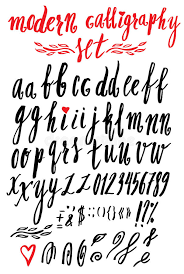 modern calligraphy
set
aabbccddeeff
gghiijklmnn
oopqrsstuvvw
wxyyzz0123456789
&!?%